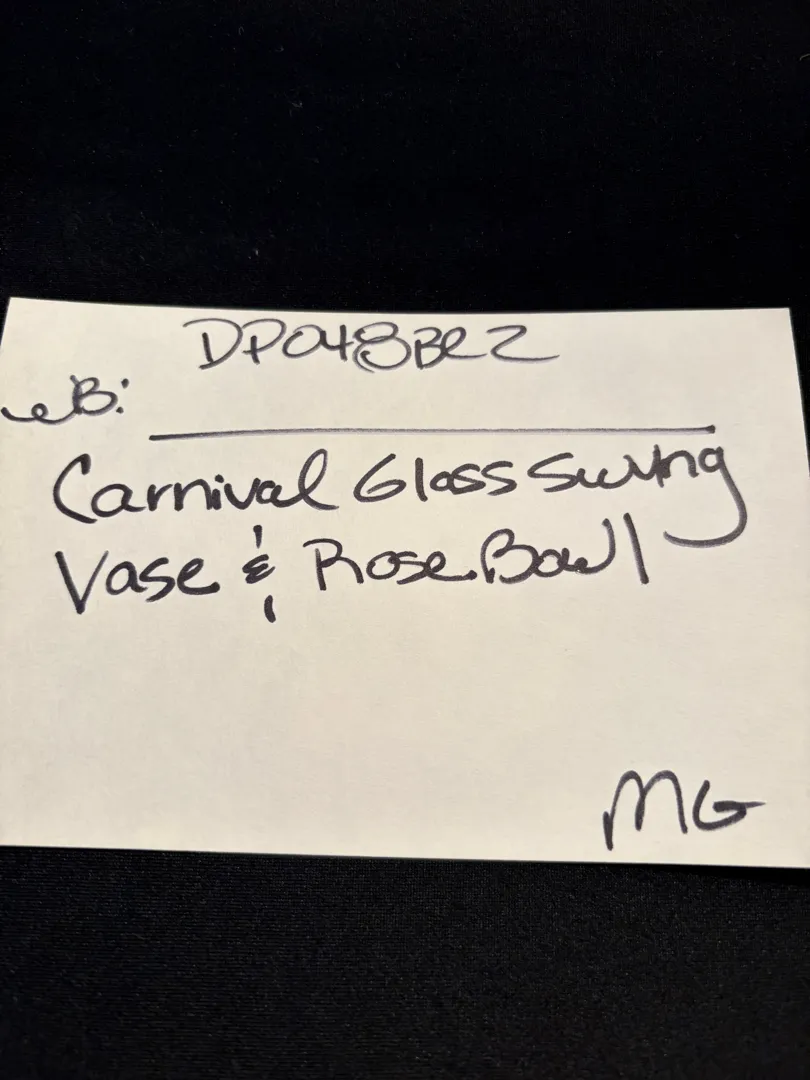 DP048BR2
eB:
Carnival Glass Swung
Vase & Rose Bowl
MG